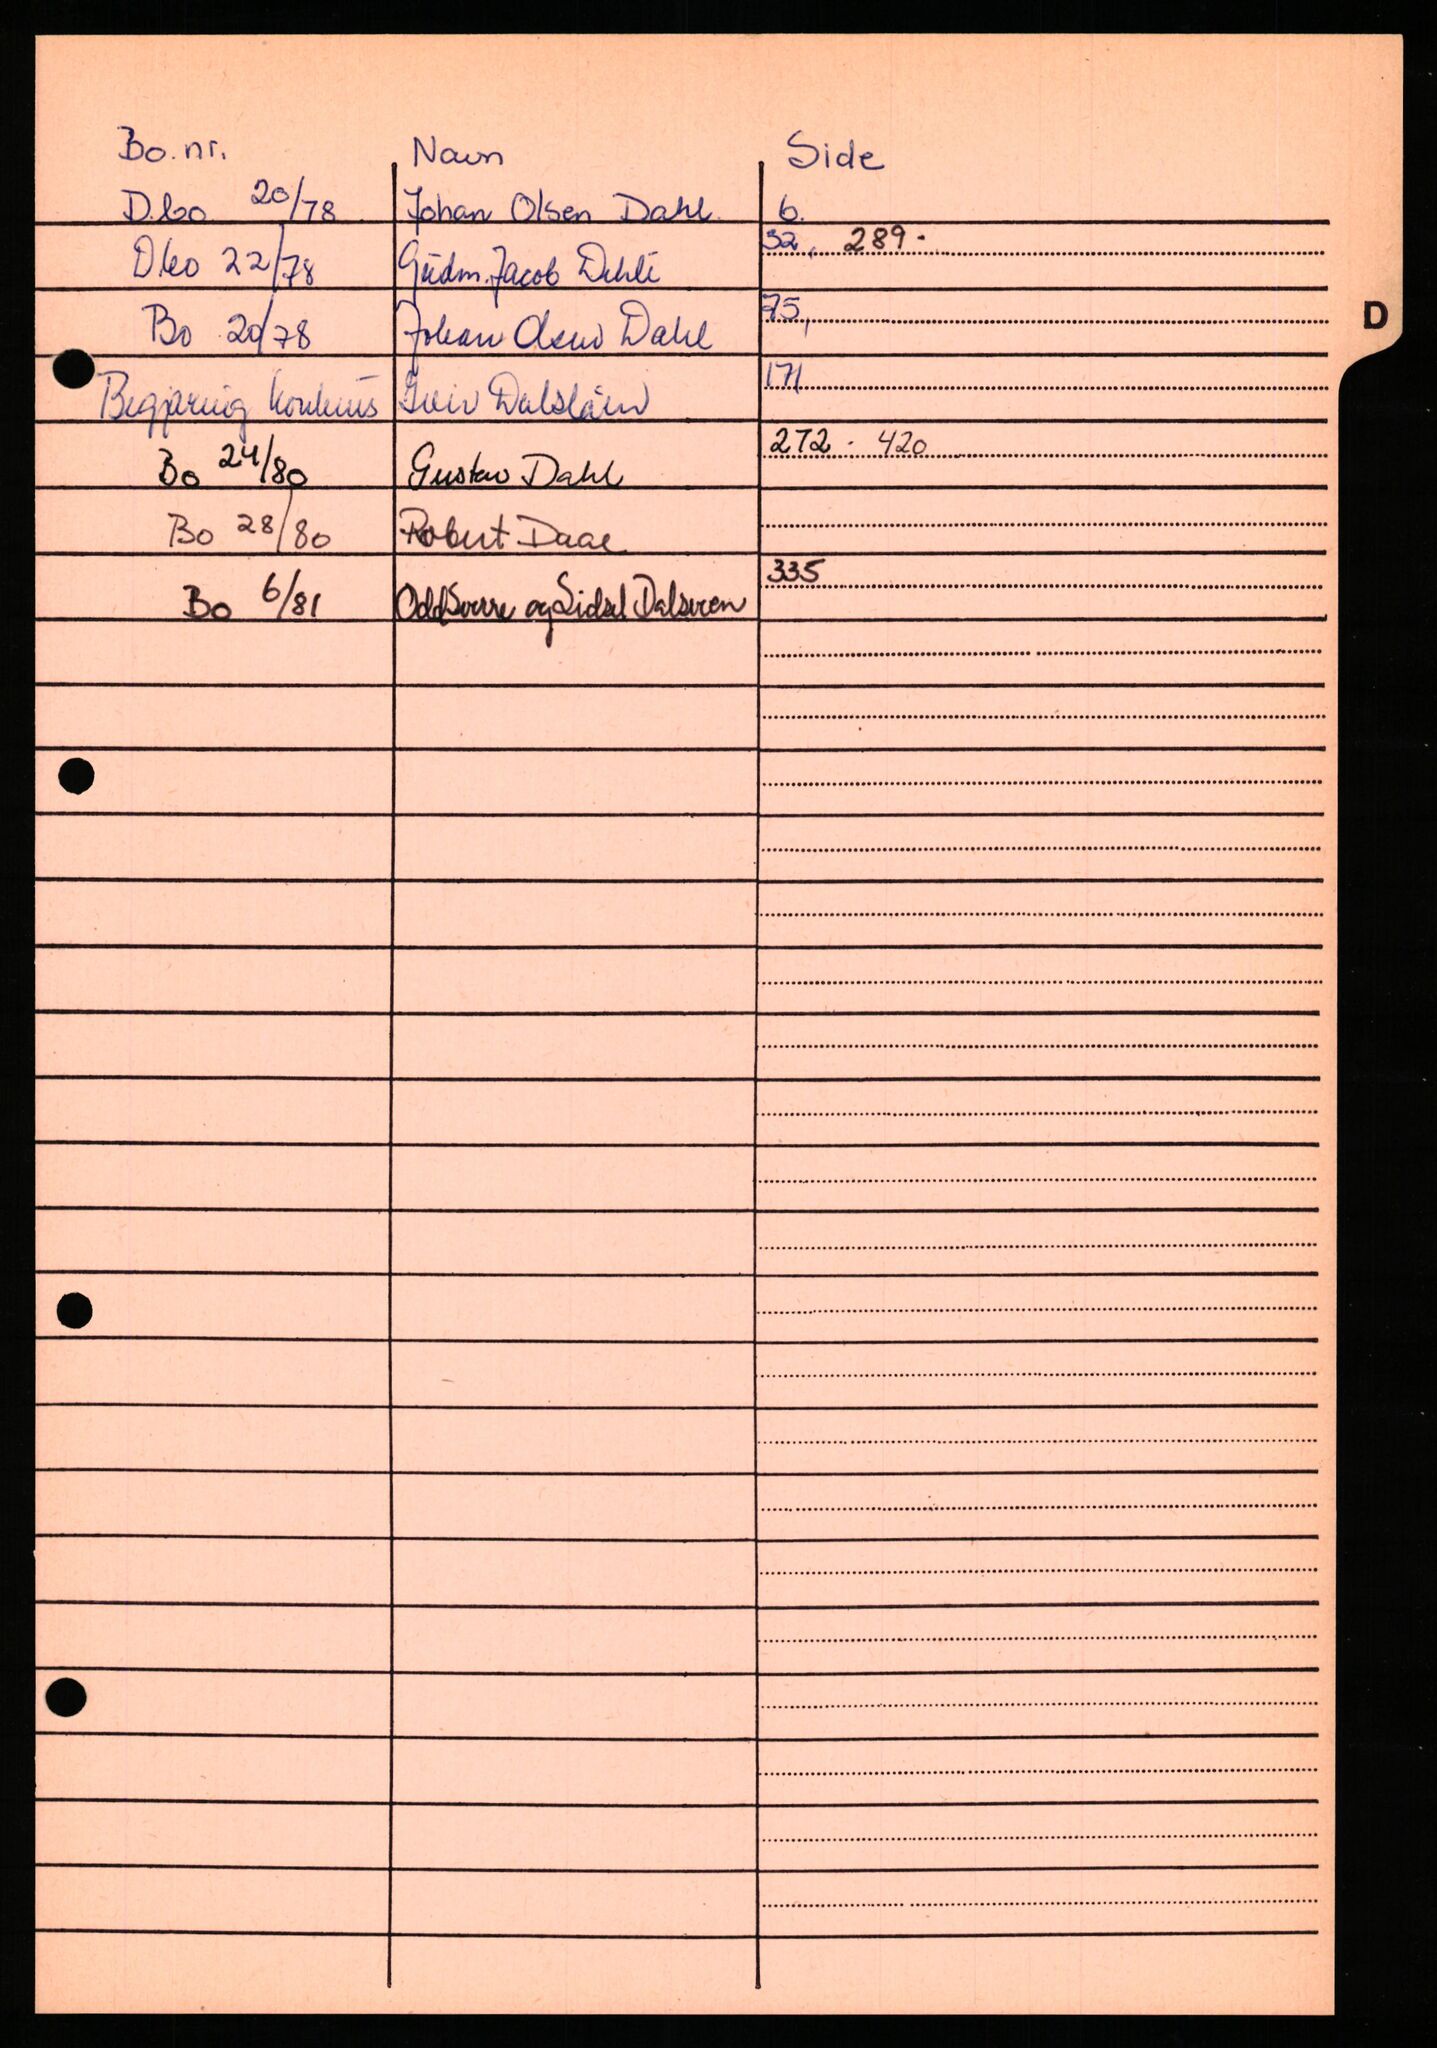 Bo.nr. Navn Side
D.bo 20/78 Johan Olsen Dahl 6.
Dbo 22/78 Gudm. Jacob Dehli 32, 289.
Bo 20/78 Johan Olsen Dahl 75,
D
Begjæring konkurs Dalslåen 171
Bo 24/80 Gustav Dahl 272. 420
Bo 28/80 Robert Daae
Bo 6/81 Odd Sverre og Sidsel Dalsveen 335